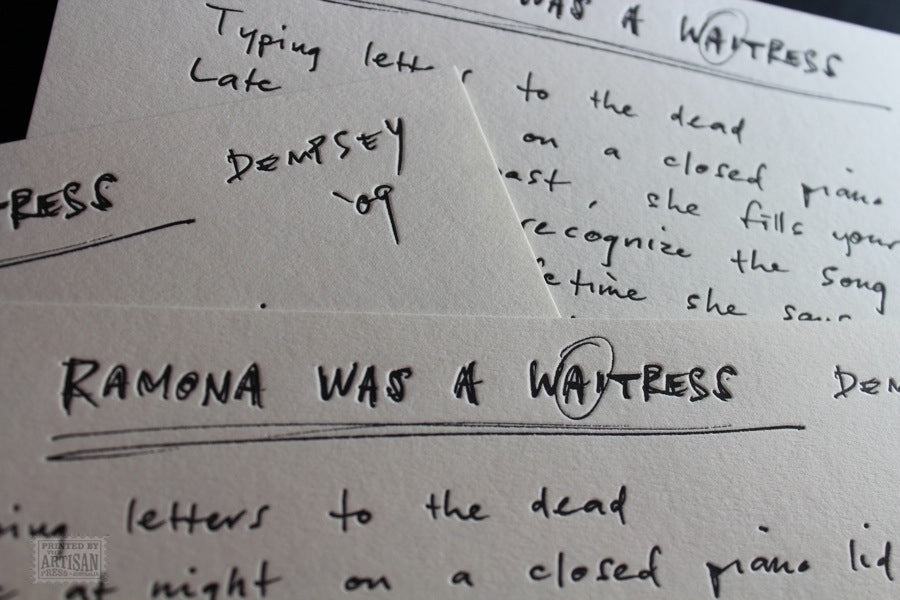 WAS A WAITRESS
Typing letter
to the dead
Late
on a closed piano
she fills your
recognize the song
she
DEMPSEY
-09
RAMONA WAS A WAITRESS
letters to the dead
at night on a closed piano lid
PRINTED BY
THE
ARTISAN
PRESS